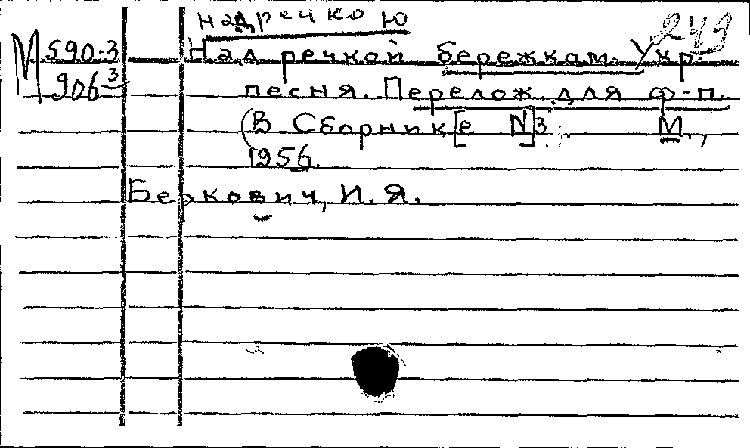 надречкою
249
М 590-3
906 3
Над речкой бережкам. Укр.
песня. Перелож. для ф-п.
(В Сборник[е N]3. М.,
1956.
Беркович, И. Я.